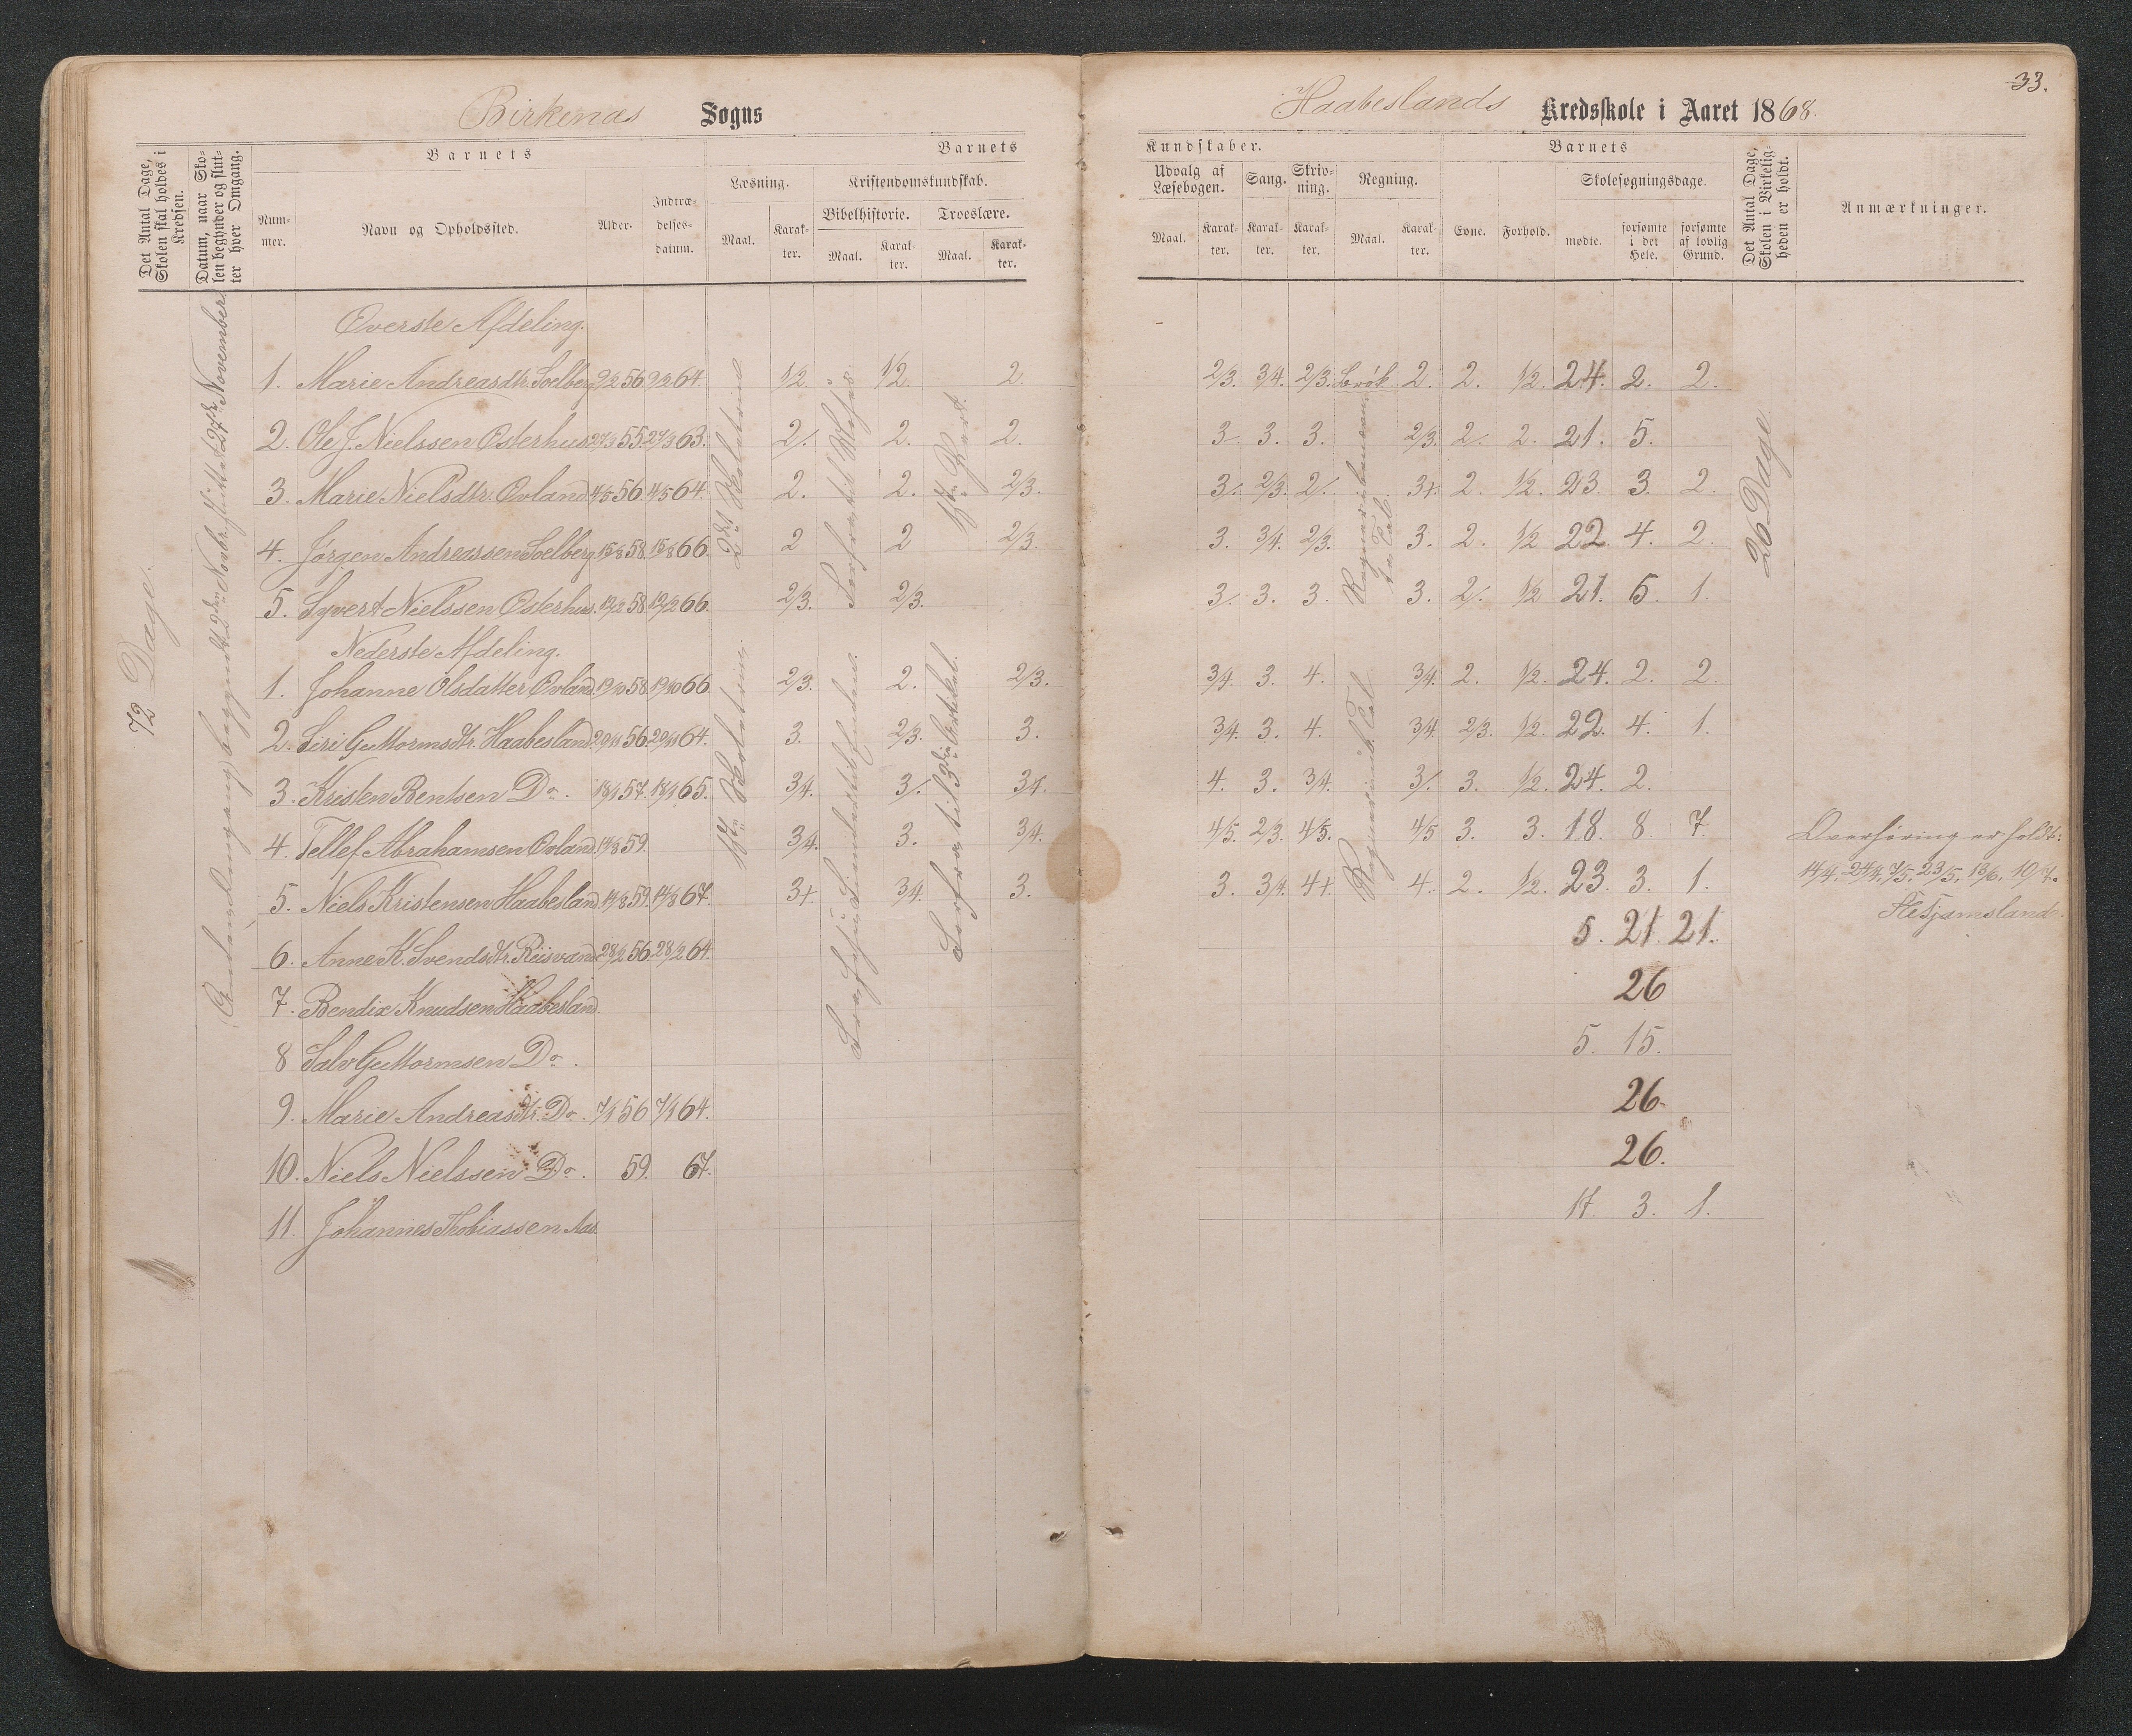 33.
Birkenæs Sogns
Haabeslands Kredsskole i Aaret 1868.
Det Antal Dage, Skolen skal holdes i Kredsen.
Datum, naar Skolen begynder og slutter hver Omgang.
Barnets
Barnets
Nummer.
Navn og Opholdssted.
Alder.
Indtrædelsesdatum.
Læsning.
Kristendomskundskab.
Bibelhistorie.
Troeslære.
Maal.
Karakter.
Maal.
Karakter.
Maal.
Karakter.
Kundskaber.
Barnets
Udvalg af Læsebogen.
Sang.
Skrivning.
Regning.
Skolesøgningsdage.
Maal.
Karakter.
Karakter.
Karakter.
Maal.
Karakter.
Evne.
Forhold.
mødte.
forsømte i det Hele.
forsømte af lovlig Grund.
Det Antal Dage, Skolen i Virkeligheden er holdt.
Anmærkninger.
72 Dage.
26 Dage.
Øverste Afdeling.
1. Marie Andreasdtr. Soelberg 9/2 56 9/2 64. 1/2 1/2. 2. 2/3. 3/4. 2/3. Brøk. 2. 2. 1/2. 24. 2. 2.
2. Ole J. Nielssen Osterhus 27/3 55. 27/3 63. 2/. 2. 2. 3. 3. 3. 2/3. 2/. 2. 21. 5.
3. Marie Nielsdtr. Ovland 4/5 56. 4/5 64. 2. 2. 2/3. 3/. 2/3. 2/. 3+. 2. 1/2. 23. 3. 2.
4. Jørgen Andreassen Soelberg 15/8 58. 15/8 66. 2 2 2/3. 3. 3/4. 2/3. 3. 2. 1/2 22. 4. 2.
5. Syvert Nielssen Osterhus. 19/2 58. 19/2 66. 2/3. 2/3. 3/. 3. 3. 3. 2/. 1/2 21. 5. 1.
Nederste Afdeling.
1. Johanne Olsdatter Ovland. 19/10 58. 19/10 66. 2/3. 2. 2/3. 3/4. 3. 4. 3/4. 2. 1/2. 24. 2. 2.
2. Siri Guttormsdtr. Haabesland 20/11 56. 20/11 64. 3. 2/3. 3. 3/4. 3. 4. 3/4. 2/3. 1/2. 22. 4. 1.
3. Kristen Bentsen Do. 18/1 57. 18/1 65. 3/4. 3/. 3/4. 4. 3. 3/4. 3/. 3. 1/2. 24. 2.
4. Tellef Abrahamsen Ovland. 14/8 59. 3/4. 3. 3/4. 4/5. 2/3. 4/5. 4/5 3. 3. 18. 8. 7.
5. Niels Kristensen Haabesland. 14/8 59. 14/8 67. 3+. 3/4. 3. 3. 3/4. 4+. 4. 2. 1/2. 23. 3. 1.
6. Anne K. Svendsdtr. Riisvand 28/2 56. 28/2 64. 5. 21. 21.
7. Bendix Knudsen Haabesland. 26
8 Salv Guttormsen Do. 5. 15.
9. Marie Andreasdtr. Do. 7/1 56 7/1 64. 26.
10. Niels Nielssen Do. 59. 67. 26.
11. Johannes Thobiassen Aas. 17. 3. 1.
Overhøring er holdt:
14/4. 24/4. 7/5. 23/5. 13/6. 10/7.